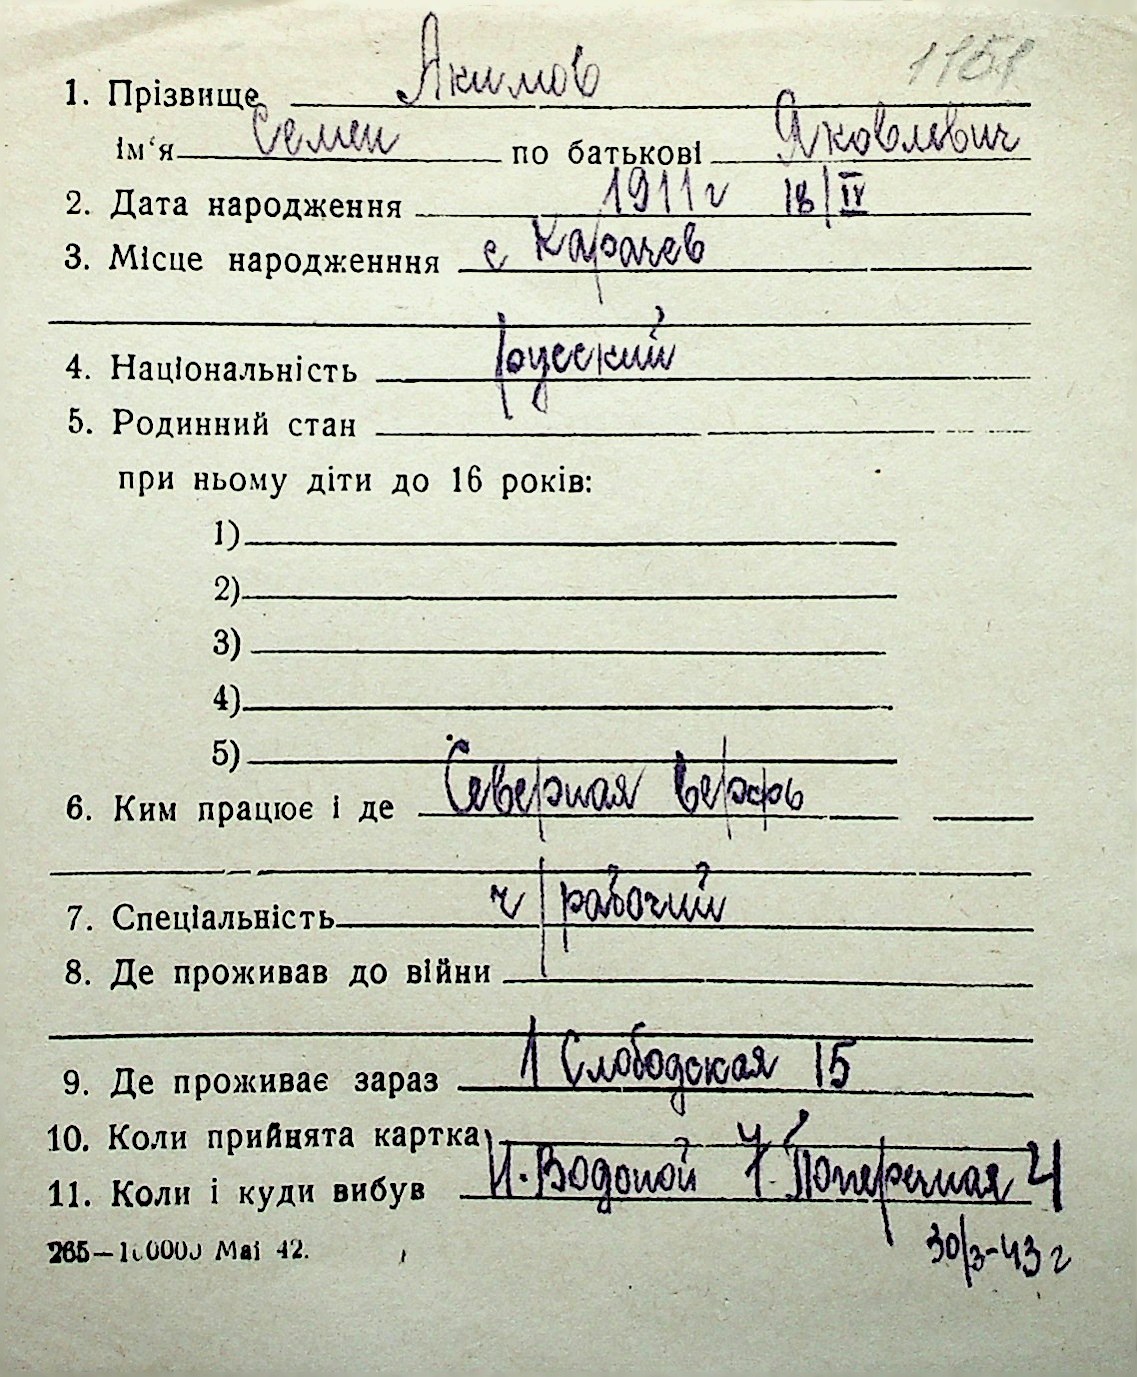 1. Прізвище Якимов
ім'я Семен по батькові Яковлевич
2. Дата народження 1911 г 18/IV
3. Місце народженння с Карачев
4. Національність русский
5. Родинний стан
при ньому діти до 16 років:
1)
2)
3)
4)
5)
6. Ким працює і де Северная верфь
7. Спеціальність ч/рабочий
8. Де проживав до війни
9. Де проживає зараз 1 Слободская 15
10. Коли прийнята картка
11. Коли і куди вибув И. Водопой Поперечная 4
30/3-43 г
265— Маі 42.